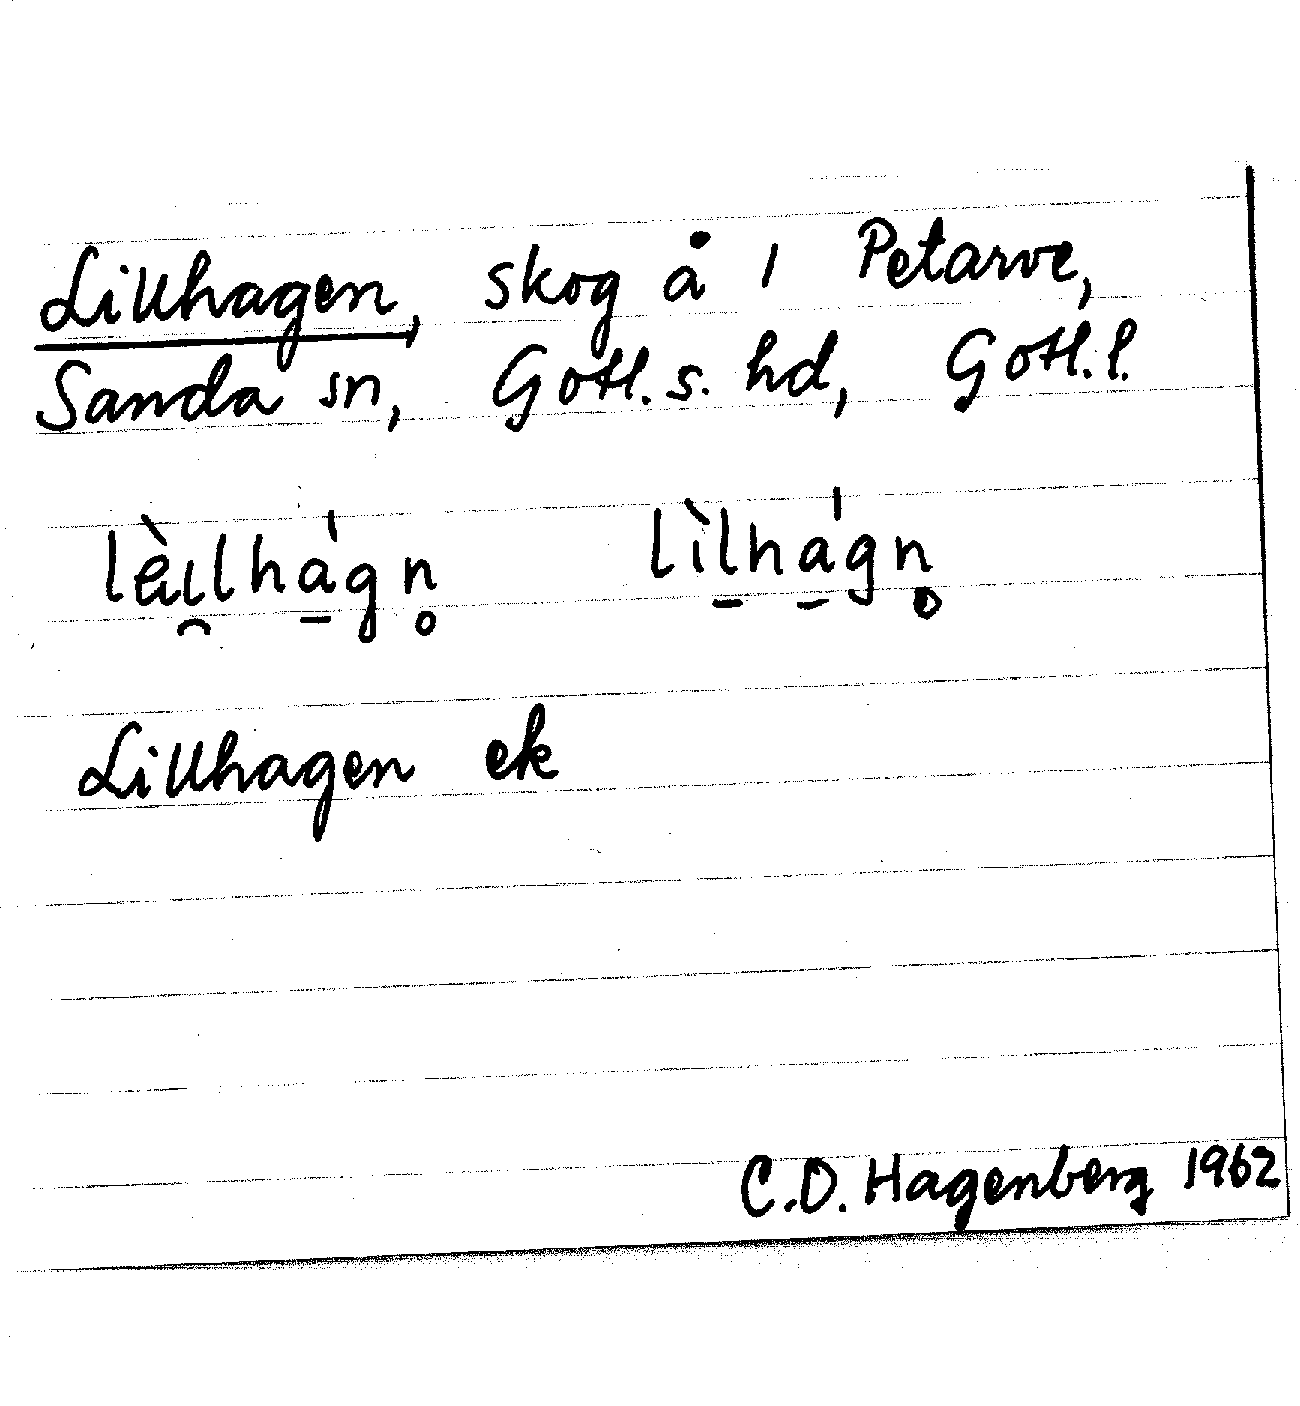 Lillhagen, skog å 1 Petarve,
Sanda sn, Gotl. s. hd, Gotl. l.
lìl̲há̲gn̥
Lillhagen ek
C.O. Hagenberg 1962